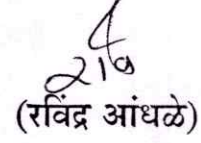 (रविंद्र आंधळे)